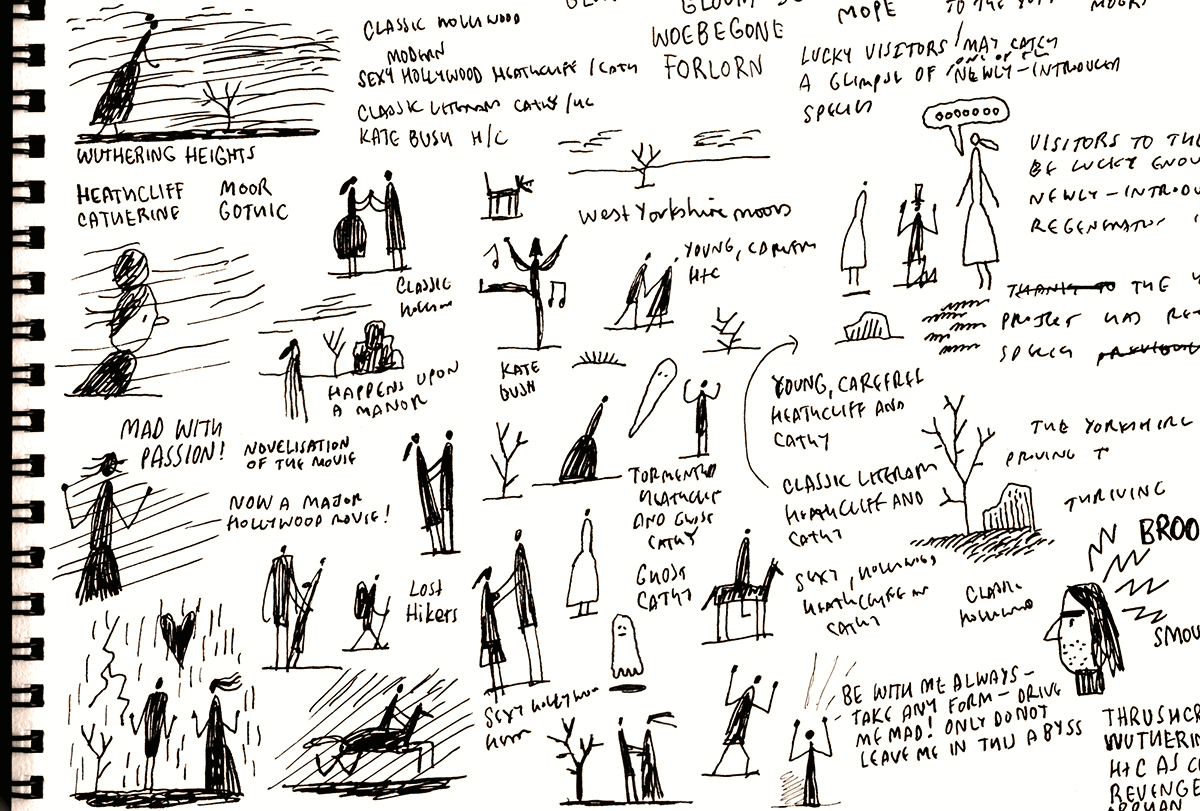 CLASSIC HOLLYWOOD
MODERN
SEXY HOLLYWOOD HEATHCLIFF / CATH
CLASSIC LITERARY CATHY / HC
KATE BUSH H/C
WOEBEGONE
FORLORN
MOPE
TO THE
MOORS
LUCKY VISITORS / MAY CATCH
ONE OF THE
A GLIMPSE OF NEWLY-INTRODUCED
SPECIES
WUTHERING HEIGHTS
HEATHCLIFF
CATHERINE
MOOR
GOTHIC
West Yorkshire moors
VISITORS TO THE
BE LUCKY ENOU
NEWLY-INTRODU
CLASSIC
YOUNG, CAREFREE
H+C
THANKS TO THE Y
PROJECT HAS RE
SPECIES
KATE
BUSH
HAPPENS UPON
A MANOR
YOUNG, CAREFREE
HEATHCLIFF AND
CATHY
MAD WITH
PASSION!
NOVELISATION
OF THE MOVIE
NOW A MAJOR
HOLLYWOOD MOVIE!
TORMENTED
HEATHCLIFF
AND GHOST
CATHY
CLASSIC LITERARY
HEATHCLIFF AND
CATHY
THE YORKSHIRE
PROVING T
THRIVING
BROO
Lost
Hikers
GHOST
CATHY
SEXY, HOLLYWOOD
HEATHCLIFF
CATHY
CLASSIC
HOLLYWOOD
SMOU
SEXY HOLLYWOO
BE WITH ME ALWAYS -
TAKE ANY FORM - DRIVE
ME MAD! ONLY DO NOT
LEAVE ME IN THIS ABYSS
THRUSHCR
WUTHERIN
H+C AS C
REVENGE
ORPHAN